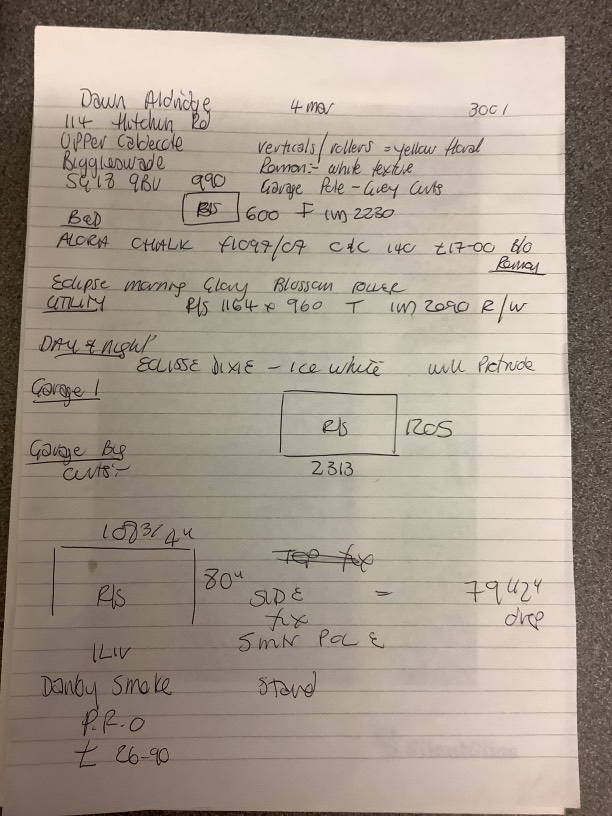 Dawn Aldridge 4 mar 3001
114 Hitchin Rd
Upper Caldecote Verticals/rollers = yellow floral
Biggleswade Roman:- white texture
SG18 9BU 990 Garage Pole - Grey Curts
BED R/S 600 F IM 2230
ALORA CHALK F1097/07 C&C 140 £17-00 B/O
Roman
Eclipse morning Glory Blossom
UTILITY R/S 1164 x 960 T IM 2090 R/W
DAY & Night
ECLISSE DIXIE - Ice White will Protrude
Garage 1
R/S 1205
Garage Big
Curts:- 2313
108 3/4"
80" Top fix
R/S SIDE = 79 1/2"
fix drop
ILIV POLE
Danby Smoke Stand
P.R.O
£ 26-90